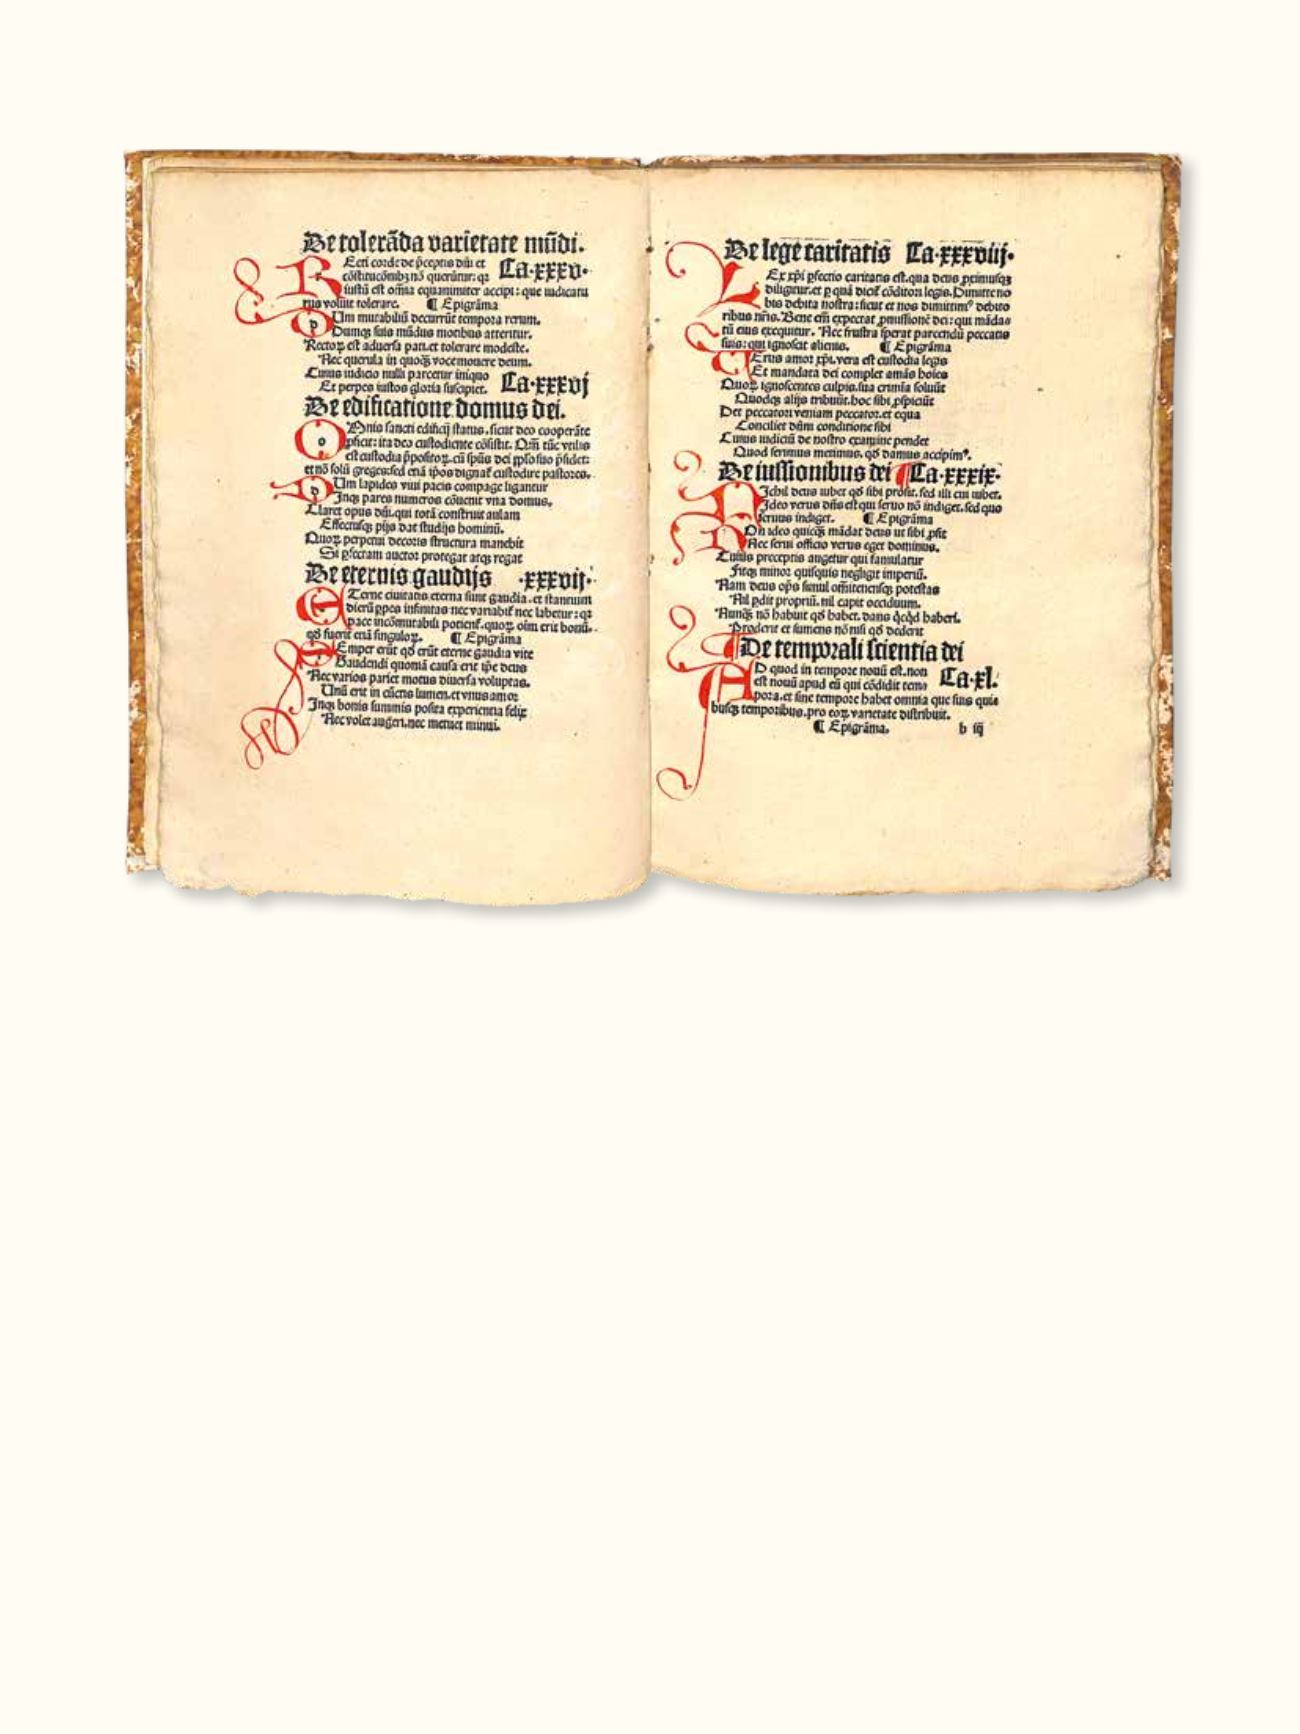 De tolerãda varietate mũdi.
Ecti cordˀ de p̃ceptis dñi et Ca.xxxv.
cõstitucõnibꝫ nõ querũtur: qꝛ
iustũ est om̃ia equanimiter accipi: que iudicatũ
rius voluit tolerare. ¶ Epigrãma
Um mutabiliũ decurrũt tempora rerum.
Dumqꝫ suis mũdus motibus atteritur.
Rectoꝝ est aduersa pati.et tolerare modeste.
Nec querula in quoqᷓꝫ voce mouere deum.
Cuius iudicio nulli parcetur iniquo
Et perpes iustos gloria suscipiet. Ca.xxxvj
De edificatione domus dei.
Mnis sancti edificij status.sicut deo cooperãte
ꝓficit: ita deo custodiente cõsistit. Qm̃ tũc vtilis
est custodia p̃positoꝝ.cũ sp̃us dei pp̃lo suo p̃sidet:
et nõ solũ greges:sed etiã ip̃os dignat᷑ custodire pastores.
Um lapides viui pacis compage ligantur
Inqꝫ pares numeros cõuenit vna domus.
Claret opus dñi.qui totã construit aulam
Effectusqꝫ pijs dat studijs hominũ.
Quoꝝ perpetui decoris structura manebit
Si ꝑfectam auctor protegat atqꝫ regat
De eternis gaudijs .xxxvij.
Terne ciuitatis eterna sunt gaudia.et stantium
dierũ ꝑpes infinitas nec variat᷑ nec labetur: qꝛ
pace incõmutabili potient᷑.quoꝝ oĩm erit bonũ.
qď fuerit etiã singuloꝝ. ¶ Epigrãma
Emper erũt qď erũt eterne gaudia vite
Gaudendi quoniã causa erit ip̃e deus
Nec varios pariet motus diuersa voluptas.
Unũ erit in cũctis lumen.et vnus amor
Inqꝫ bonis summis posita experientia felix
Nec volet augeri.nec metuet minui.
De lege caritatis Ca.xxxviij.
Ex xp̃i ꝑfectio caritatis est.qua deus ꝓximusqꝫ
diligitur.et ꝑ quã dicit᷑ cõditori legis.Dimitte no
bis debita nostra:sicut et nos dimittimꝰ debito
ribus nr̃is. Bene em̃ expectat ꝓmissionẽ dei: qui mãda
tũ eius exequitur. Nec frustra sperat parcendũ peccatis
suis: qui ignoscit alienis. ¶ Epigrãma
Erus amor xp̃i.vera est custodia legis
Et mandata dei complet amãs hoĩes
Quoꝝ ignoscentes culpis.sua crimĩa soluũt
Quodqꝫ alijs tribuũt.hoc sibi ꝓspiciũt
Det peccatori veniam peccator.et equa
Conciliet dñm conditione sibi
Cuius iudiciũ de nostro examine pendet
Quod serimus metimus.qď damus accipimꝰ.
De iussionibus dei ¶ Ca.xxxix.
Ichil deus iubet qď sibi prosit.sed illi cui iubet.
Ideo verus dñs est qui seruo nõ indiget.sed quo
seruus indiget. ¶ Epigrãma
On ideo quicqᷓꝫ mãdat deus ut sibi ꝓsit
Nec serui officio verus eget dominus.
Cuius preceptis augetur qui famulatur
Fitqꝫ minor quisquis negligit imperiũ.
Nam deus op̃s simul om̃itenensqꝫ potestas
Nil ꝑdit propriũ.nil capit occiduum.
Nunqᷓꝫ nõ habuit qď habet.dans qͥcqͥd haberi.
Proderit et sumens nõ nisi qď dederit
De temporali scientia dei
D quod in tempore nouũ est.non Ca.xl.
est nouũ apud eũ qui cõdidit tem
pora.et sine tempore habet omnia que suis qui
busqꝫ temporibus.pro eoꝝ varietate distribuit.
¶ Epigrãma. b iij